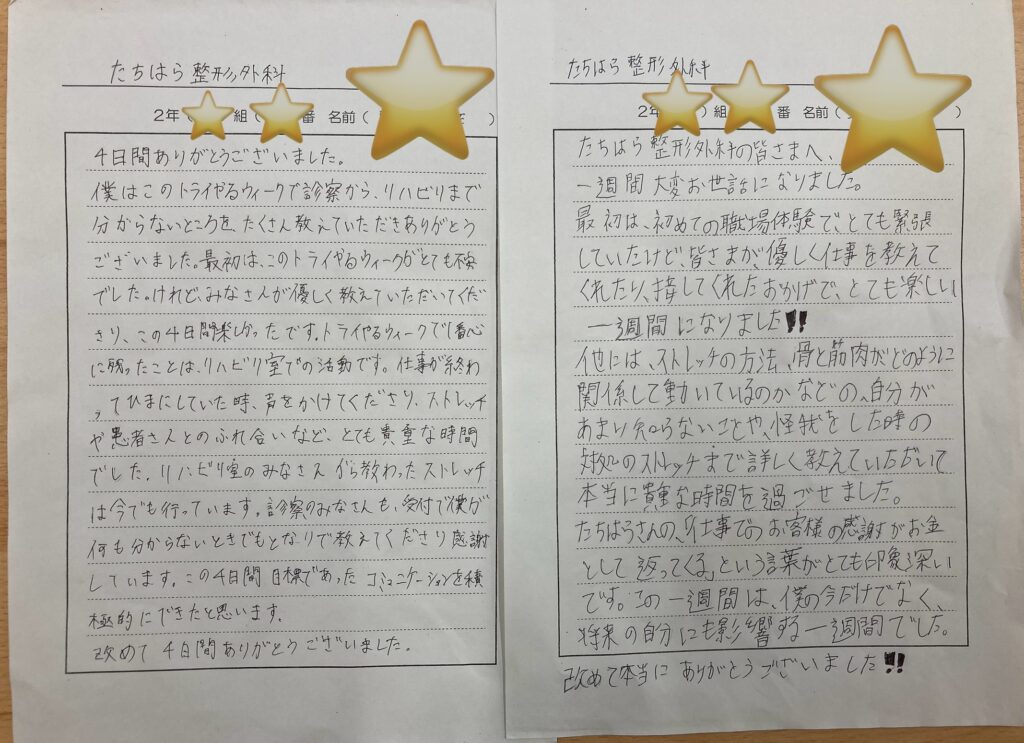 たちはら整形外科
2年 ( 組 ( 番 名前 ( )
4日間ありがとうございました。
僕はこのトライやるウィークで診察から、リハビリまで
分からないところを、たくさん教えていただきありがとう
ございました。最初は、このトライやるウィークがとても不安
でした。けれど、みなさんが優しく教えていただいてくだ
さり、この4日間楽しかったです。トライやるウィークで1番心
に残ったことは、リハビリ室での活動です。仕事が終わ
ってひまにしていた時、声をかけてくださり、ストレッチ
や患者さんとのふれ合いなど、とても貴重な時間
でした。リハビリ室のみなさんから教わったストレッチ
は今でも行っています。診察のみなさんも、受付で僕が
何も分からないときでもとなりで教えてくださり感謝
しています。この4日間目標であったコミュニケーションを積
極的にできたと思います。
改めて4日間ありがとうございました。
たちはら整形外科
2年 ( ) 組 ( 番 名前 ( )
たちはら整形外科の皆さまへ、
一週間大変お世話になりました。
最初は、初めての職場体験で、とても緊張
していたけど、皆さまが、優しく仕事を教えて
くれたり、接してくれたおかげで、とても楽しい
一週間になりました!!
他には、ストレッチの方法、骨と筋肉がどのように
関係して動いているのかなどの、自分が
あまり知らないことや、怪我をした時の
対処のストレッチまで詳しく教えていただいて
本当に貴重な時間を過ごせました。
たちはらさんの、「仕事でのお客様の感謝がお金
として返ってくる」という言葉がとても印象深い
です。この一週間は、僕の今だけでなく、
将来の自分にも影響する一週間でした。
改めて本当にありがとうございました!!